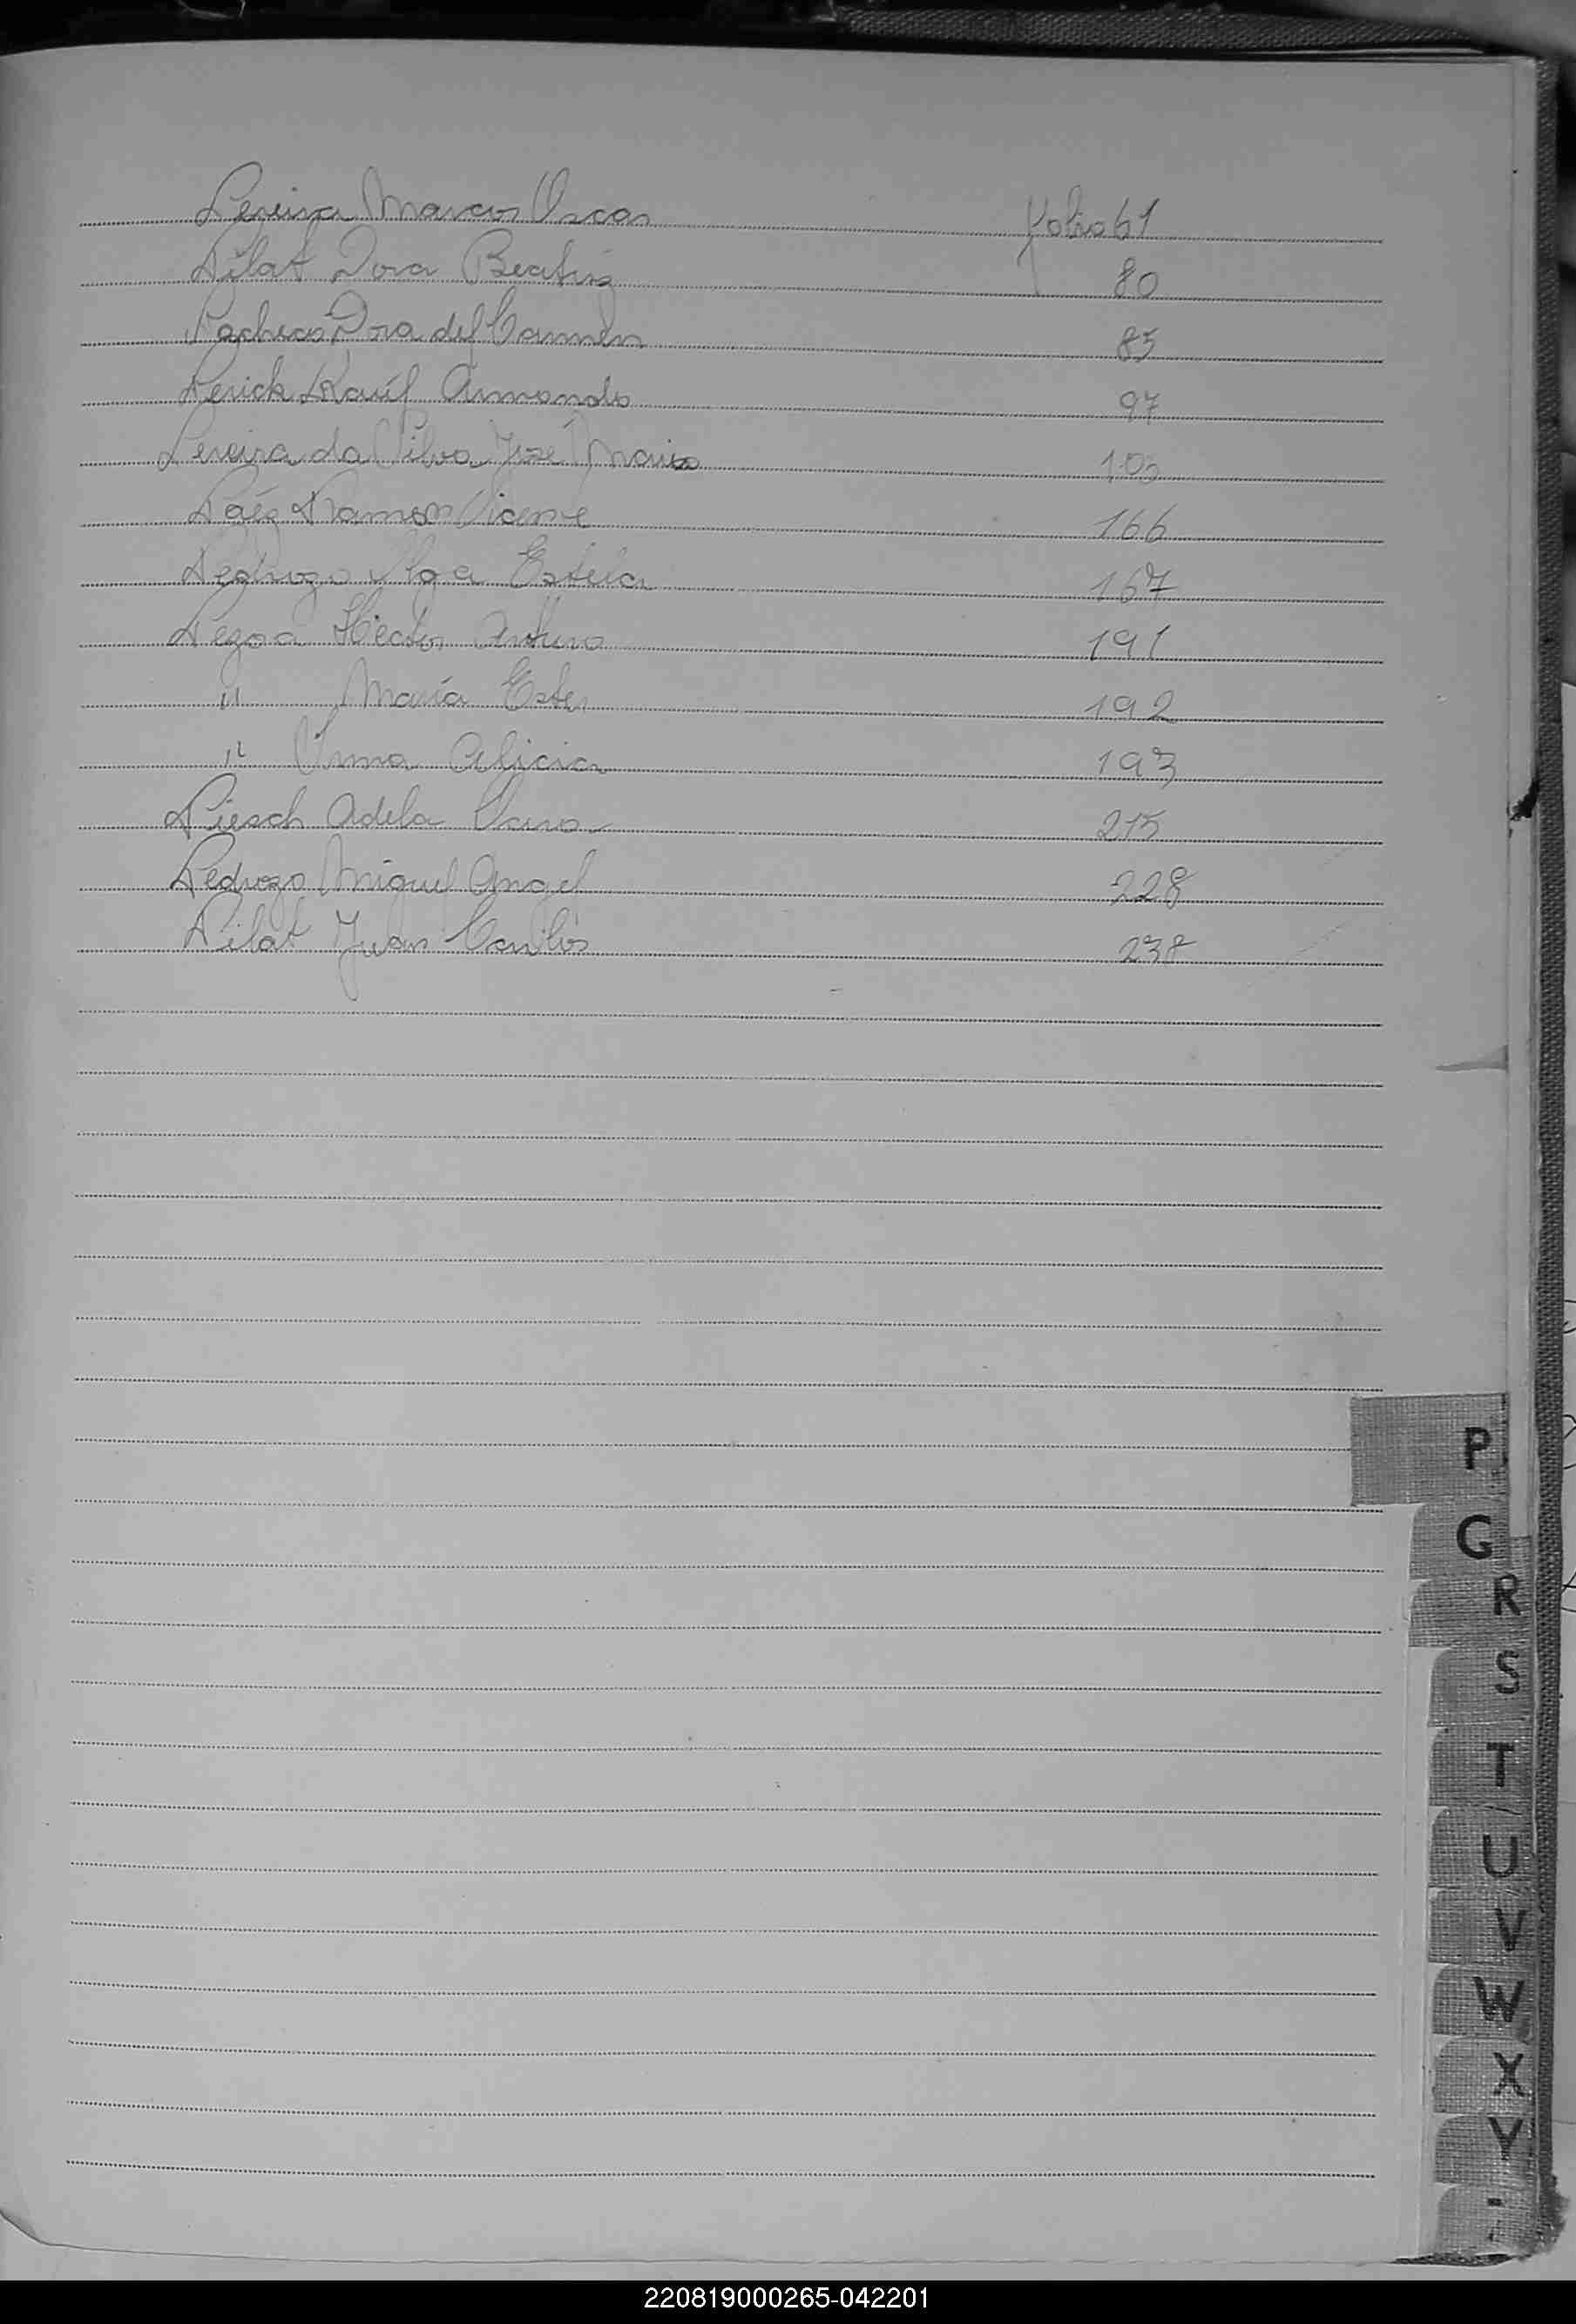 Pereira Marcos Oscar Folio 61
Pilat Dora Beatriz 80
Pacheco Dora del Carmen 85
Perick Raúl Armando 97
Pereira da Silva José Mario 103
Páez Ramon Vicente 166
Pedrozo Ilga Estela 167
Pezoa Héctor Arturo 191
" María Ester 192
" Irma Alicia 193
Piesch Adela Clara 215
Pedrozo Miguel Angel 228
Pilat Juan Carlos 238
P
G
R
S
T
U
V
W
X
Y
220819000265-042201